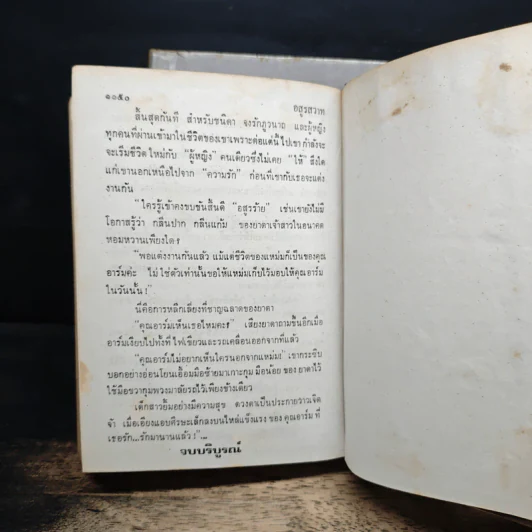 ๑๐๕๑ อสูรสวาท
สิ้นสุดกันที สำหรับชนิดา จงรักภูวนาย และผู้หญิง
ทุกคนที่ผ่านเข้ามาในชีวิตของเขาเพราะต่อแต่นี้ไปเขา กำลังจะ
จะเริ่มชีวิตใหม่กับ "ผู้หญิง" คนเดียวซึ่งไม่เคย "ให้" สิ่งใด
แก่เขานอกเหนือไปจาก "ความรัก" ก่อนที่เขากับเธอจะแต่ง
งานกัน
"ใครรู้เข้าคงขบขันสิ้นดี "อสูรร้าย" เช่นเขายังไม่มี
โอกาสรู้ว่า กลิ่นปาก กลิ่นแก้ม ของยาดาเจ้าสาวในอนาคต
หอมหวานเพียงใด!
"พอแต่งงานกันแล้ว แม้แต่ชีวิตของแหม่มก็เป็นของคุณ
อาร์มค่ะ ไม่ ใช่ตัวเท่านั้นขอให้แหม่มเก็บไว้มอบให้คุณอาร์ม
ในวันนั้น!"
นี่คือการหลีกเลี่ยงที่ชาญฉลาดของยาดา
"คุณอาร์มเห็นเธอไหมคะ?" เสียงยาดาถามขึ้นอีกเมื่อ
อาร์มเงียบไปทั้งที่ ไฟเขียวและรถเคลื่อนออกจากที่แล้ว
"คุณอาร์มไม่อยากเห็นใครนอกจากแหม่ม!" เขากระซิบ
บอกอย่างอ่อนโยนเอื้อมมือซ้ายมาเกาะกุม มือน้อย ของ ยาดาไว้
ใช้มือขวากุมพวงมาลัยรถไว้เพียงข้างเดียว
เด็กสาวยิ้มอย่างมีความสุข ดวงตาเป็นประกายวาวเจิด
จ้า เมื่อเอียงแอบศีรษะเล็กลงบนไหล่แข็งแรง ของ คุณอาร์ม ที่
เธอรัก...รักมานานแล้ว!"...
จบบริบูรณ์